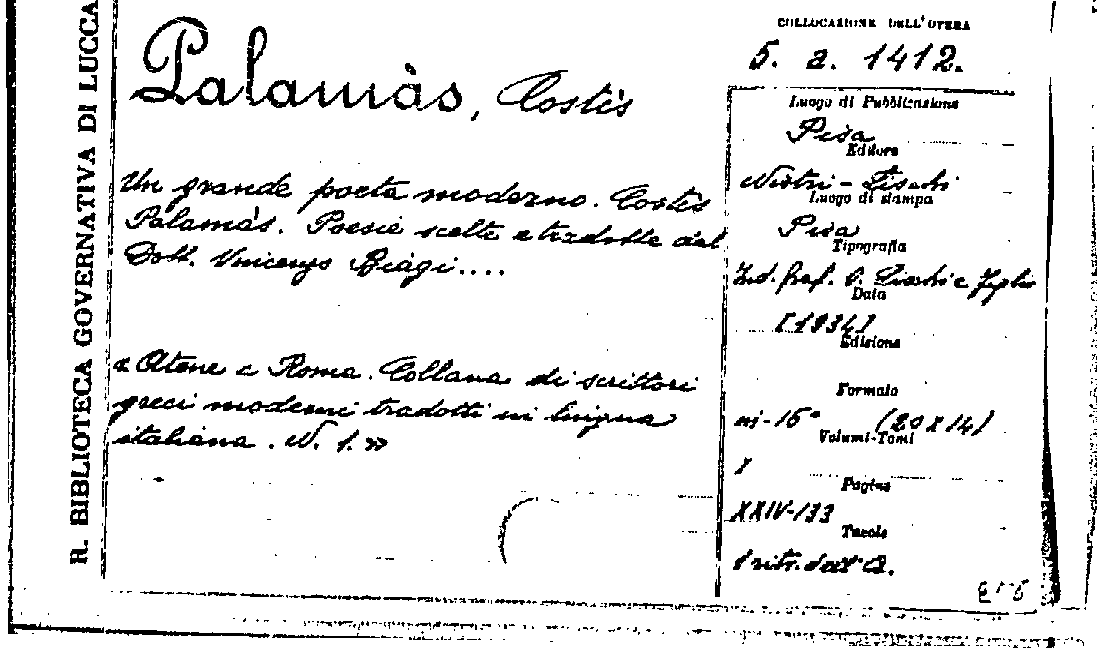 R. BIBLIOTECA GOVERNATIVA DI LUCCA
Palamàs, Costìs
Un grande poeta moderno. Costìs
Palamàs. Poesie scelte e tradotte dal
Dott. Vincenzo Biagi....
« Atene e Roma. Collana di scrittori
greci moderni tradotti in lingua
italiana. N. 1. »
COLLOCAZIONE DELL'OPERA
5. a. 1412.
Luogo di Pubblicazione
Pisa
Editore
Nistri - Lischi
Luogo di stampa
Pisa
Tipografia
Ind. Graf. V. Lischi e Figli
Data
[1934]
Edizione
Formato
in-16° (20 x 14)
Volumi-Tomi
1
Pagine
XXIV-133
Tavole
1 ritr. dell'A.